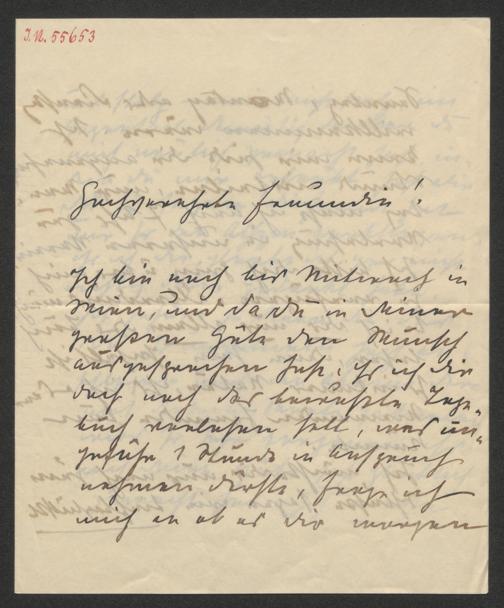 J.N. 55653
Hochverehrte Freundin!
Ich bin noch bis Mittwoch in
Wien, und da du in deiner
großen Güte den Wunsch
ausgesprochen hast, daß ich dir
doch noch das bewußte Tage-
buch vorlesen soll, was un-
gefähr 1 Stunde in Anspruch
nehmen dürfte, frage ich
mich an ob es dir morgen